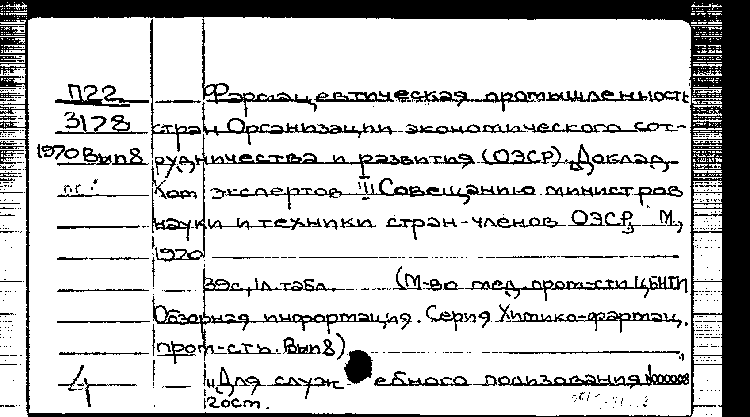 П22 Фармацевтическая промышленность
3178 стран Организации экономического сот-
1970 Вып8 рудничества и развития (ОЭСР). Доклад
Ком экспертов III Совещанию министров
науки и техники стран-членов ОЭСР, М.,
1970
39с, 1л. табл. (М-во мед. пром-сти ЦБНТИ
Обзорная информация. Серия Химико-фармац.
пром-сть. Вып8)
4 "Для служебного пользования" №000008
2 ост.